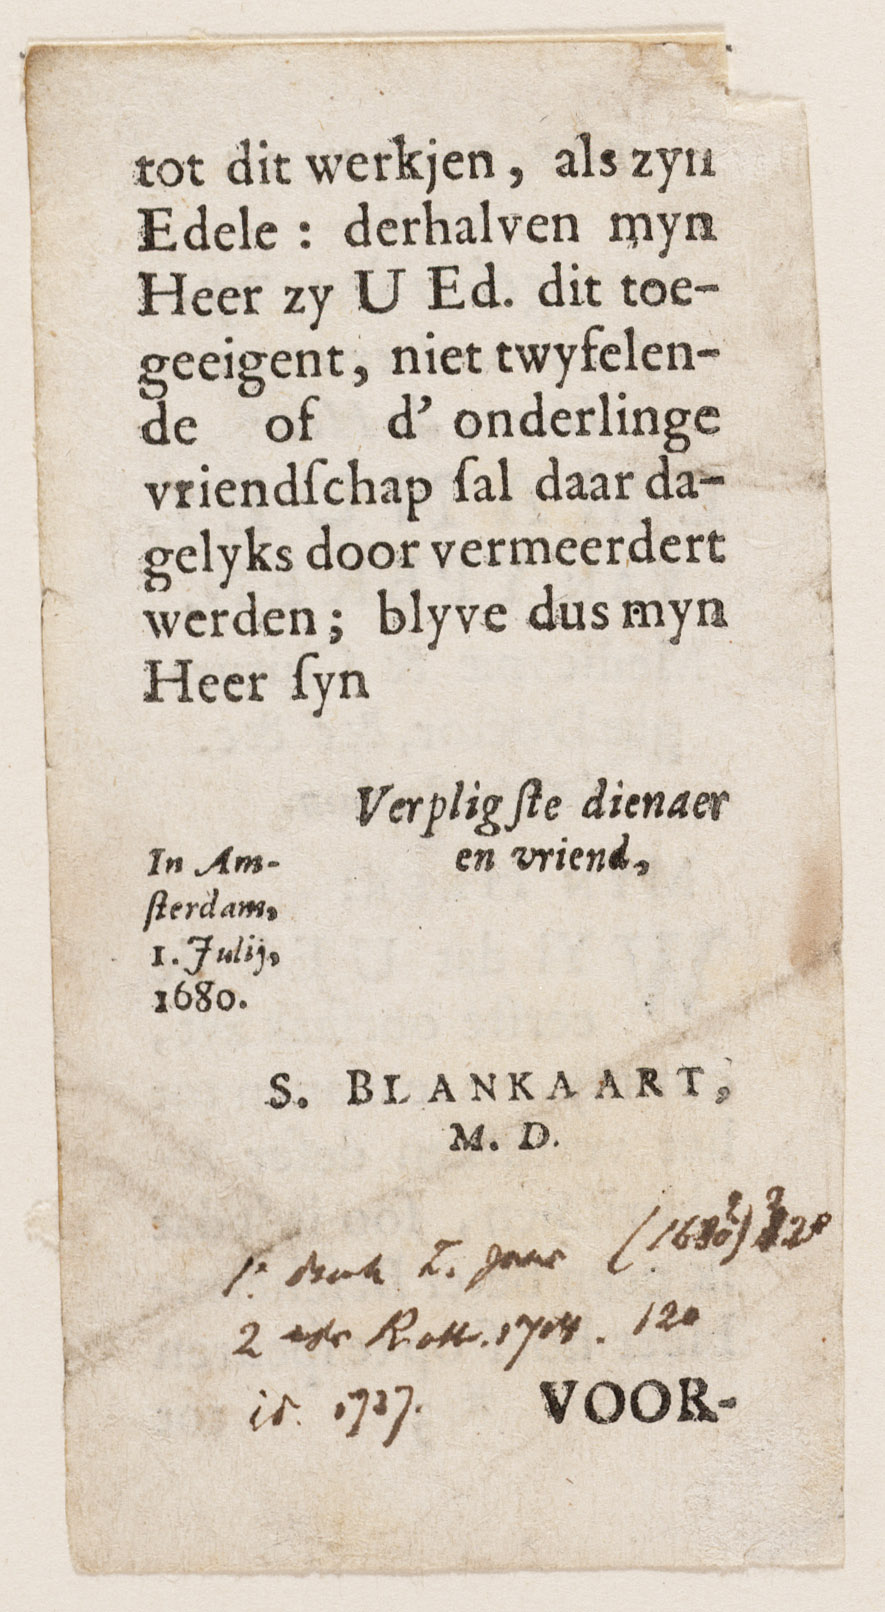 tot dit werkjen, als zyn
Edele : derhalven myn
Heer zy U Ed. dit toe-
geeigent, niet twyfelen-
de of d' onderlinge
vriendſchap ſal daar da-
gelyks door vermeerdert
werden; blyve dus myn
Heer ſyn
Verpligſte dienaer
en vriend,
In Am-
ſterdam,
1. Julij,
1680.
S. BLANKAART,
M. D.
1e druk Z. jaar (1680)
2 de Rott. 1704. 12o
id. 1727.
VOOR-